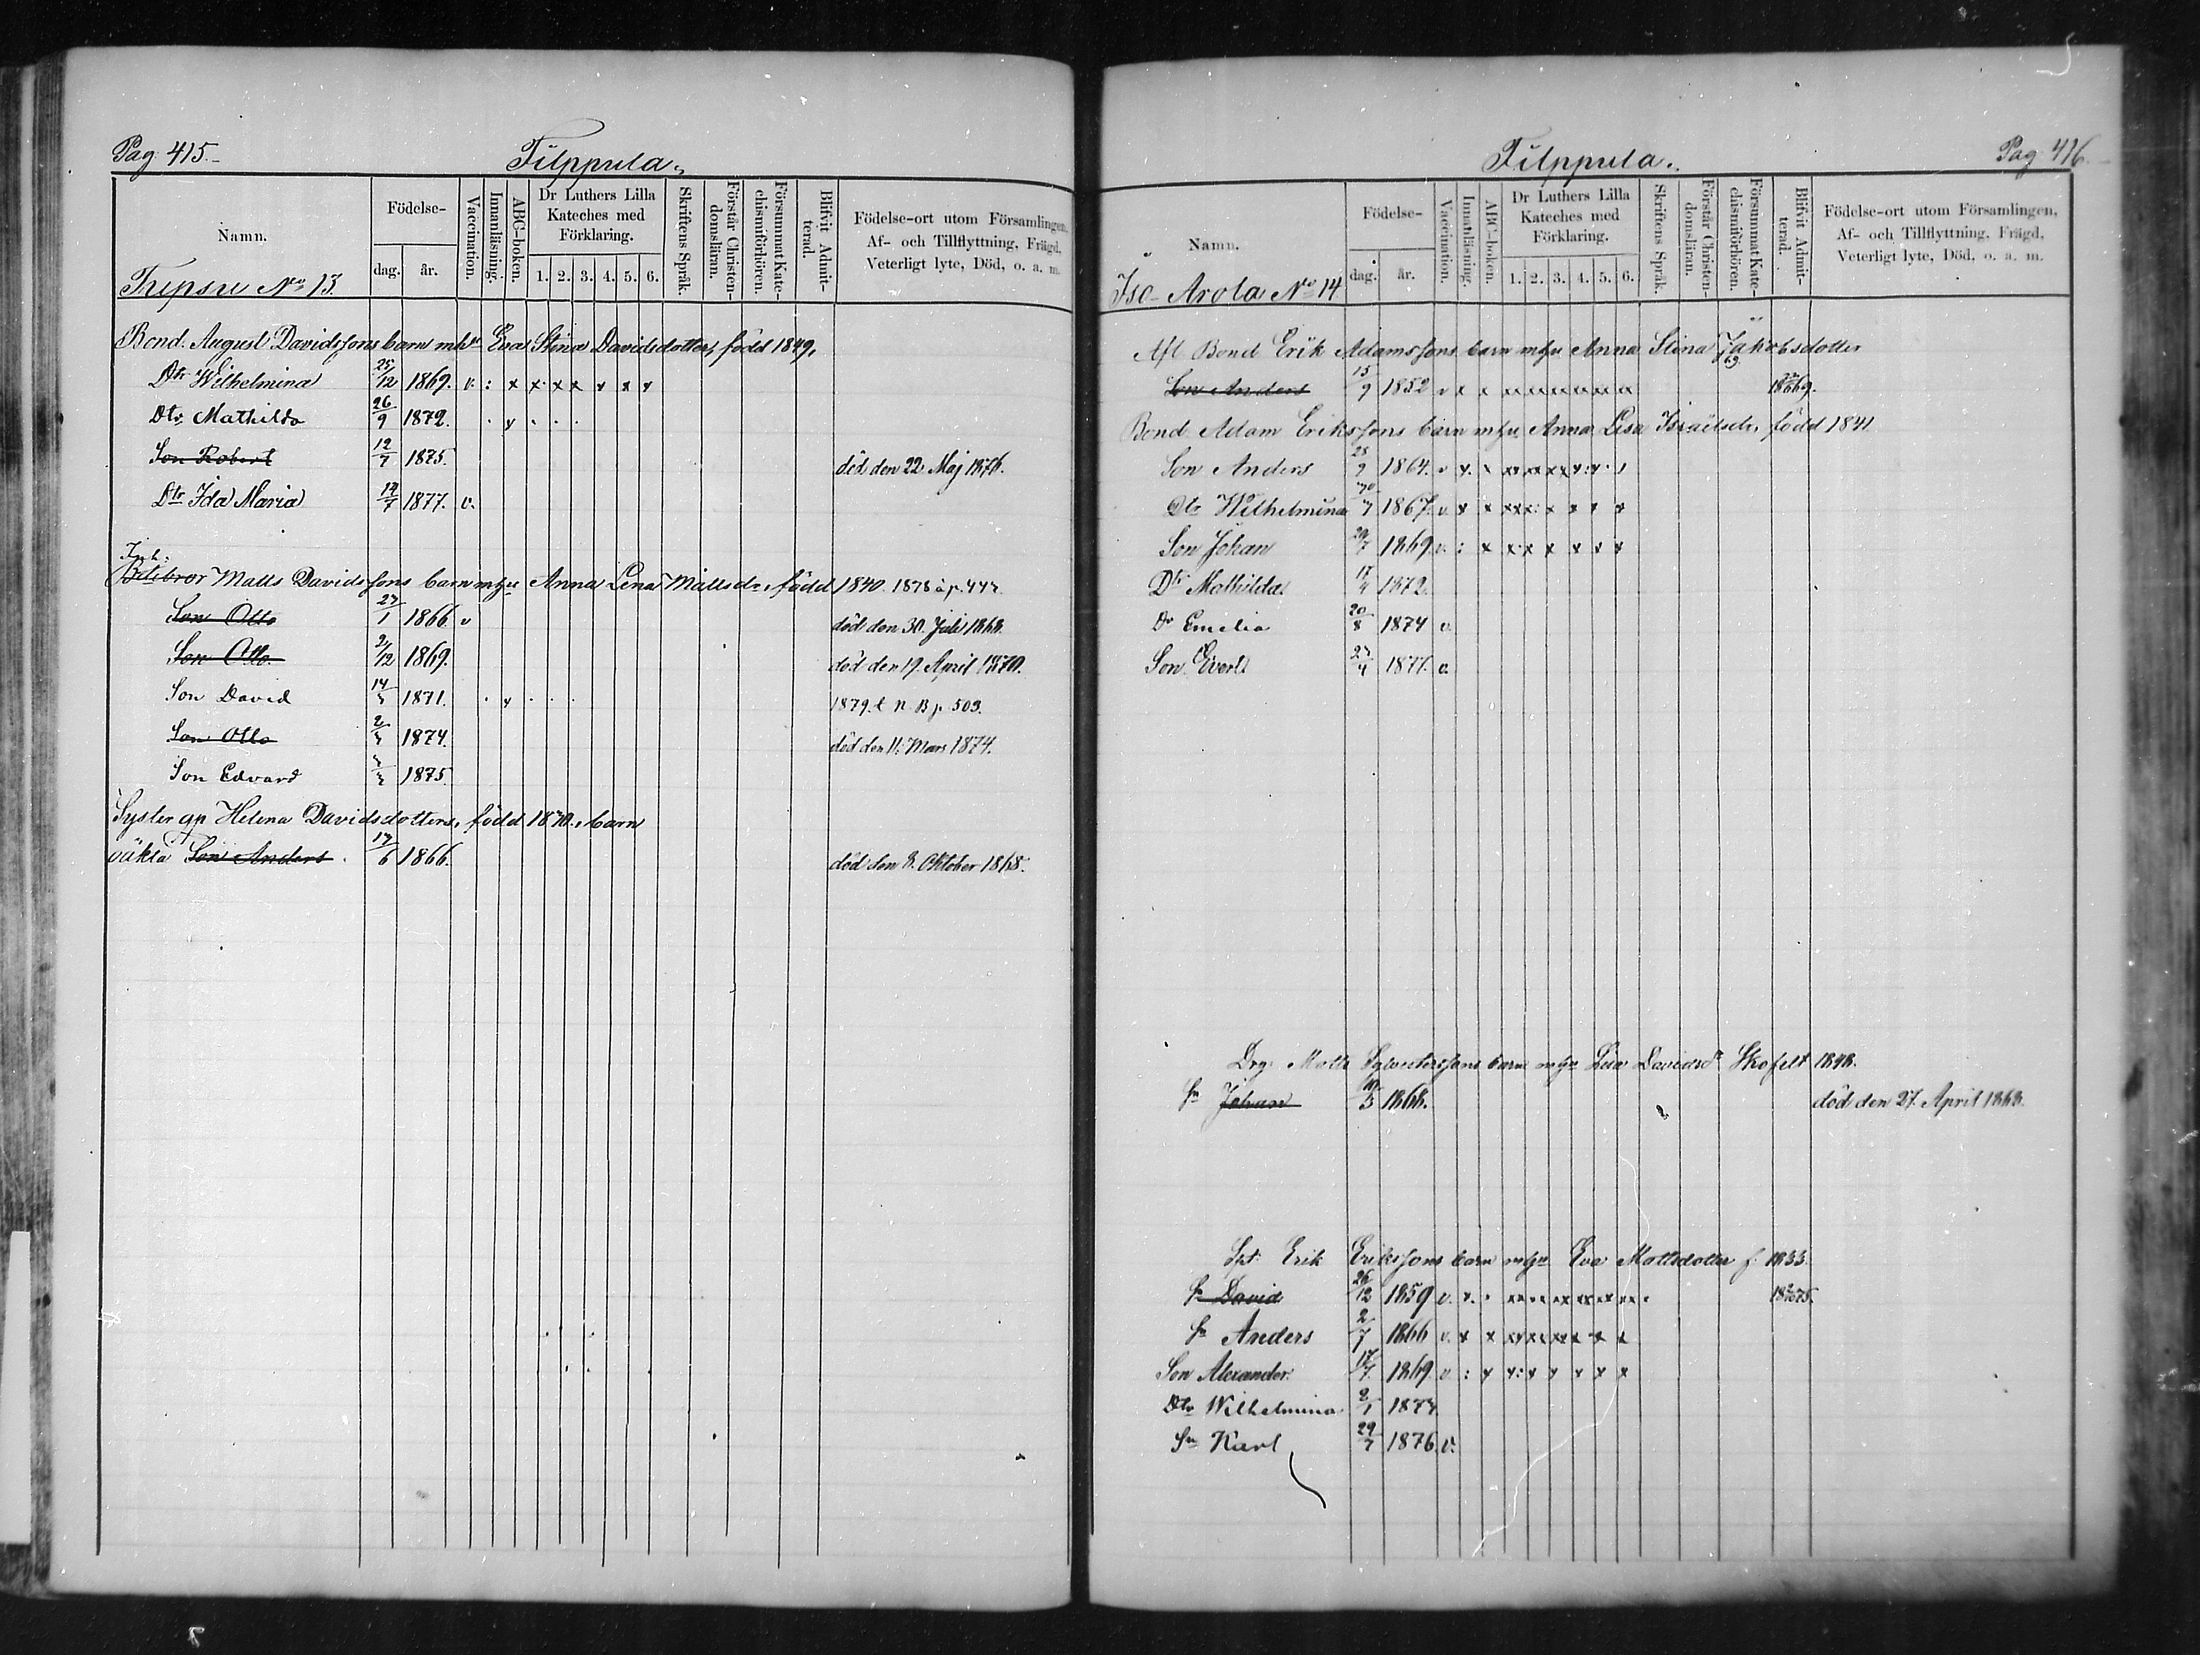 Pag 415.
Filppula.
Namn.
Födelse-
dag.
år.
Vaccination.
Innanläsning.
ABC-boken.
Dr Luthers Lilla Kateches med Förklaring.
1. 2. 3. 4. 5. 6.
Skriftens Språk.
Förstår Christendomsläran.
Försummat Katechismiförhören.
Blifvit Admitterad.
Födelse-ort utom Församlingen, Af- och Tillflyttning, Frägd, Veterligt lyte, Död, o. a. m.
Tupsu No 13.
Bond. August Davidssons barn mhu Eva Stina Davidsdotter, född 1849.
Dtr Wilhelmina 25/12 1869. v. : x x x x v x v
Dtr Mathilda 26/9 1872. . y . . .
Son Robert 12/7 1875. död den 22 Maj 1876.
Dtr Ida Maria 12/7 1877. v.
Inh.
Matts Davidssons barn mhu Anna Lena Mattsdr, född 1840. 1878
Son Otto 27/1 1866. v död den 30 Juli 1868.
Son Otto 2/12 1869. död den 19. April 1870.
Son David 14/3 1871. . y . . . 1879. t N B p. 503.
Son Otto 2/3 1874. död den 11. Mars 1874.
Son Edvard 1875.
Syster qp Helena Davidsdotters, född barn
oäkta Son Anders 17/6 1866. död den 8. Oktober 1868.
Filppula.
Pag 416.
Namn.
Födelse-
dag.
år.
Vaccination.
Innanläsning.
ABC-boken.
Dr Luthers Lilla Kateches med Förklaring.
1. 2. 3. 4. 5. 6.
Skriftens Språk.
Förstår Christendomsläran.
Försummat Katechismiförhören.
Blifvit Admitterad.
Födelse-ort utom Församlingen, Af- och Tillflyttning, Frägd, Veterligt lyte, Död, o. a. m.
Iso-Arola No 14
Afl Bond Erik Adamssons barn mhu Anna Stina Jakobsdotter
Son Anders 15/9 1852 v x x xx xx xx xx x x
Bond Adam Erikssons barn mhu Anna Lisa Israelsdr, född 1841
Son Anders 28/9 1864.
Dtr Wilhelmina 1867. v x x xx x: x x x x
Son Johan 29/7 1869. v : x x x x x x x
Dtr Mathilda 17/4 1872.
Dr Emelia 20/8 1874 v.
Son Evert 27/4 1877. v.
Drg Matts Sylvesterssons barn mhu Lisa Davidsdr Skofelt 1848.
Sn Johan 1868. död den 27 April 1868.
Spt Erik Erikssons barn mhu Eva Mattsdotter f. 1833.
Sn David 26/12 1859 v.
Sn Anders 2/7 1866 v. x x xx xx xx x x
Son Alexander. 17/7 1869. v : y x: x y x x x
Dtr Wilhelmina 2/1
Sn Karl 29/7 1876. v.